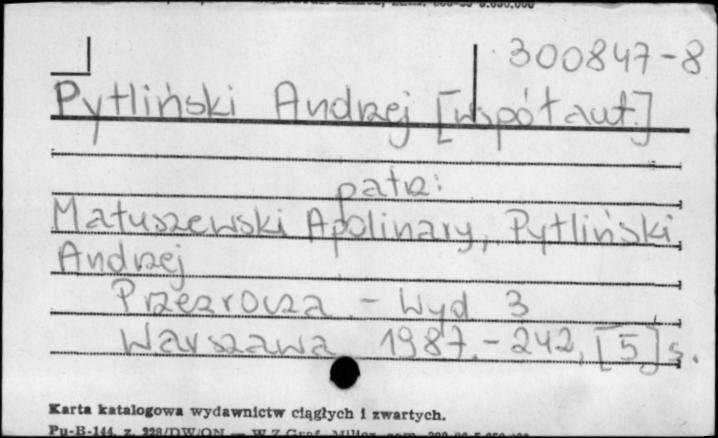 300847-8
Pytliński Andrzej [współaut.]
patrz:
Matuszewski Apolinary, Pytliński
Andrzej
Przezrocza. - Wyd 3
Warszawa 1987. - 242, [5] s.
Karta katalogowa wydawnictw ciągłych i zwartych.
Pu-B-144, z. 228/DW/ON — W.Z.Graf.